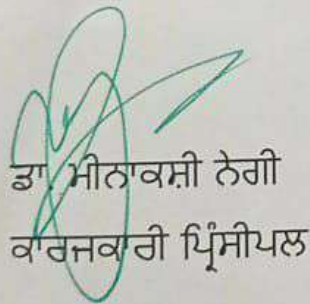 ਡਾ. ਮੀਨਾਕਸ਼ੀ ਨੇਗੀ
ਕਾਰਜਕਾਰੀ ਪ੍ਰਿੰਸੀਪਲ